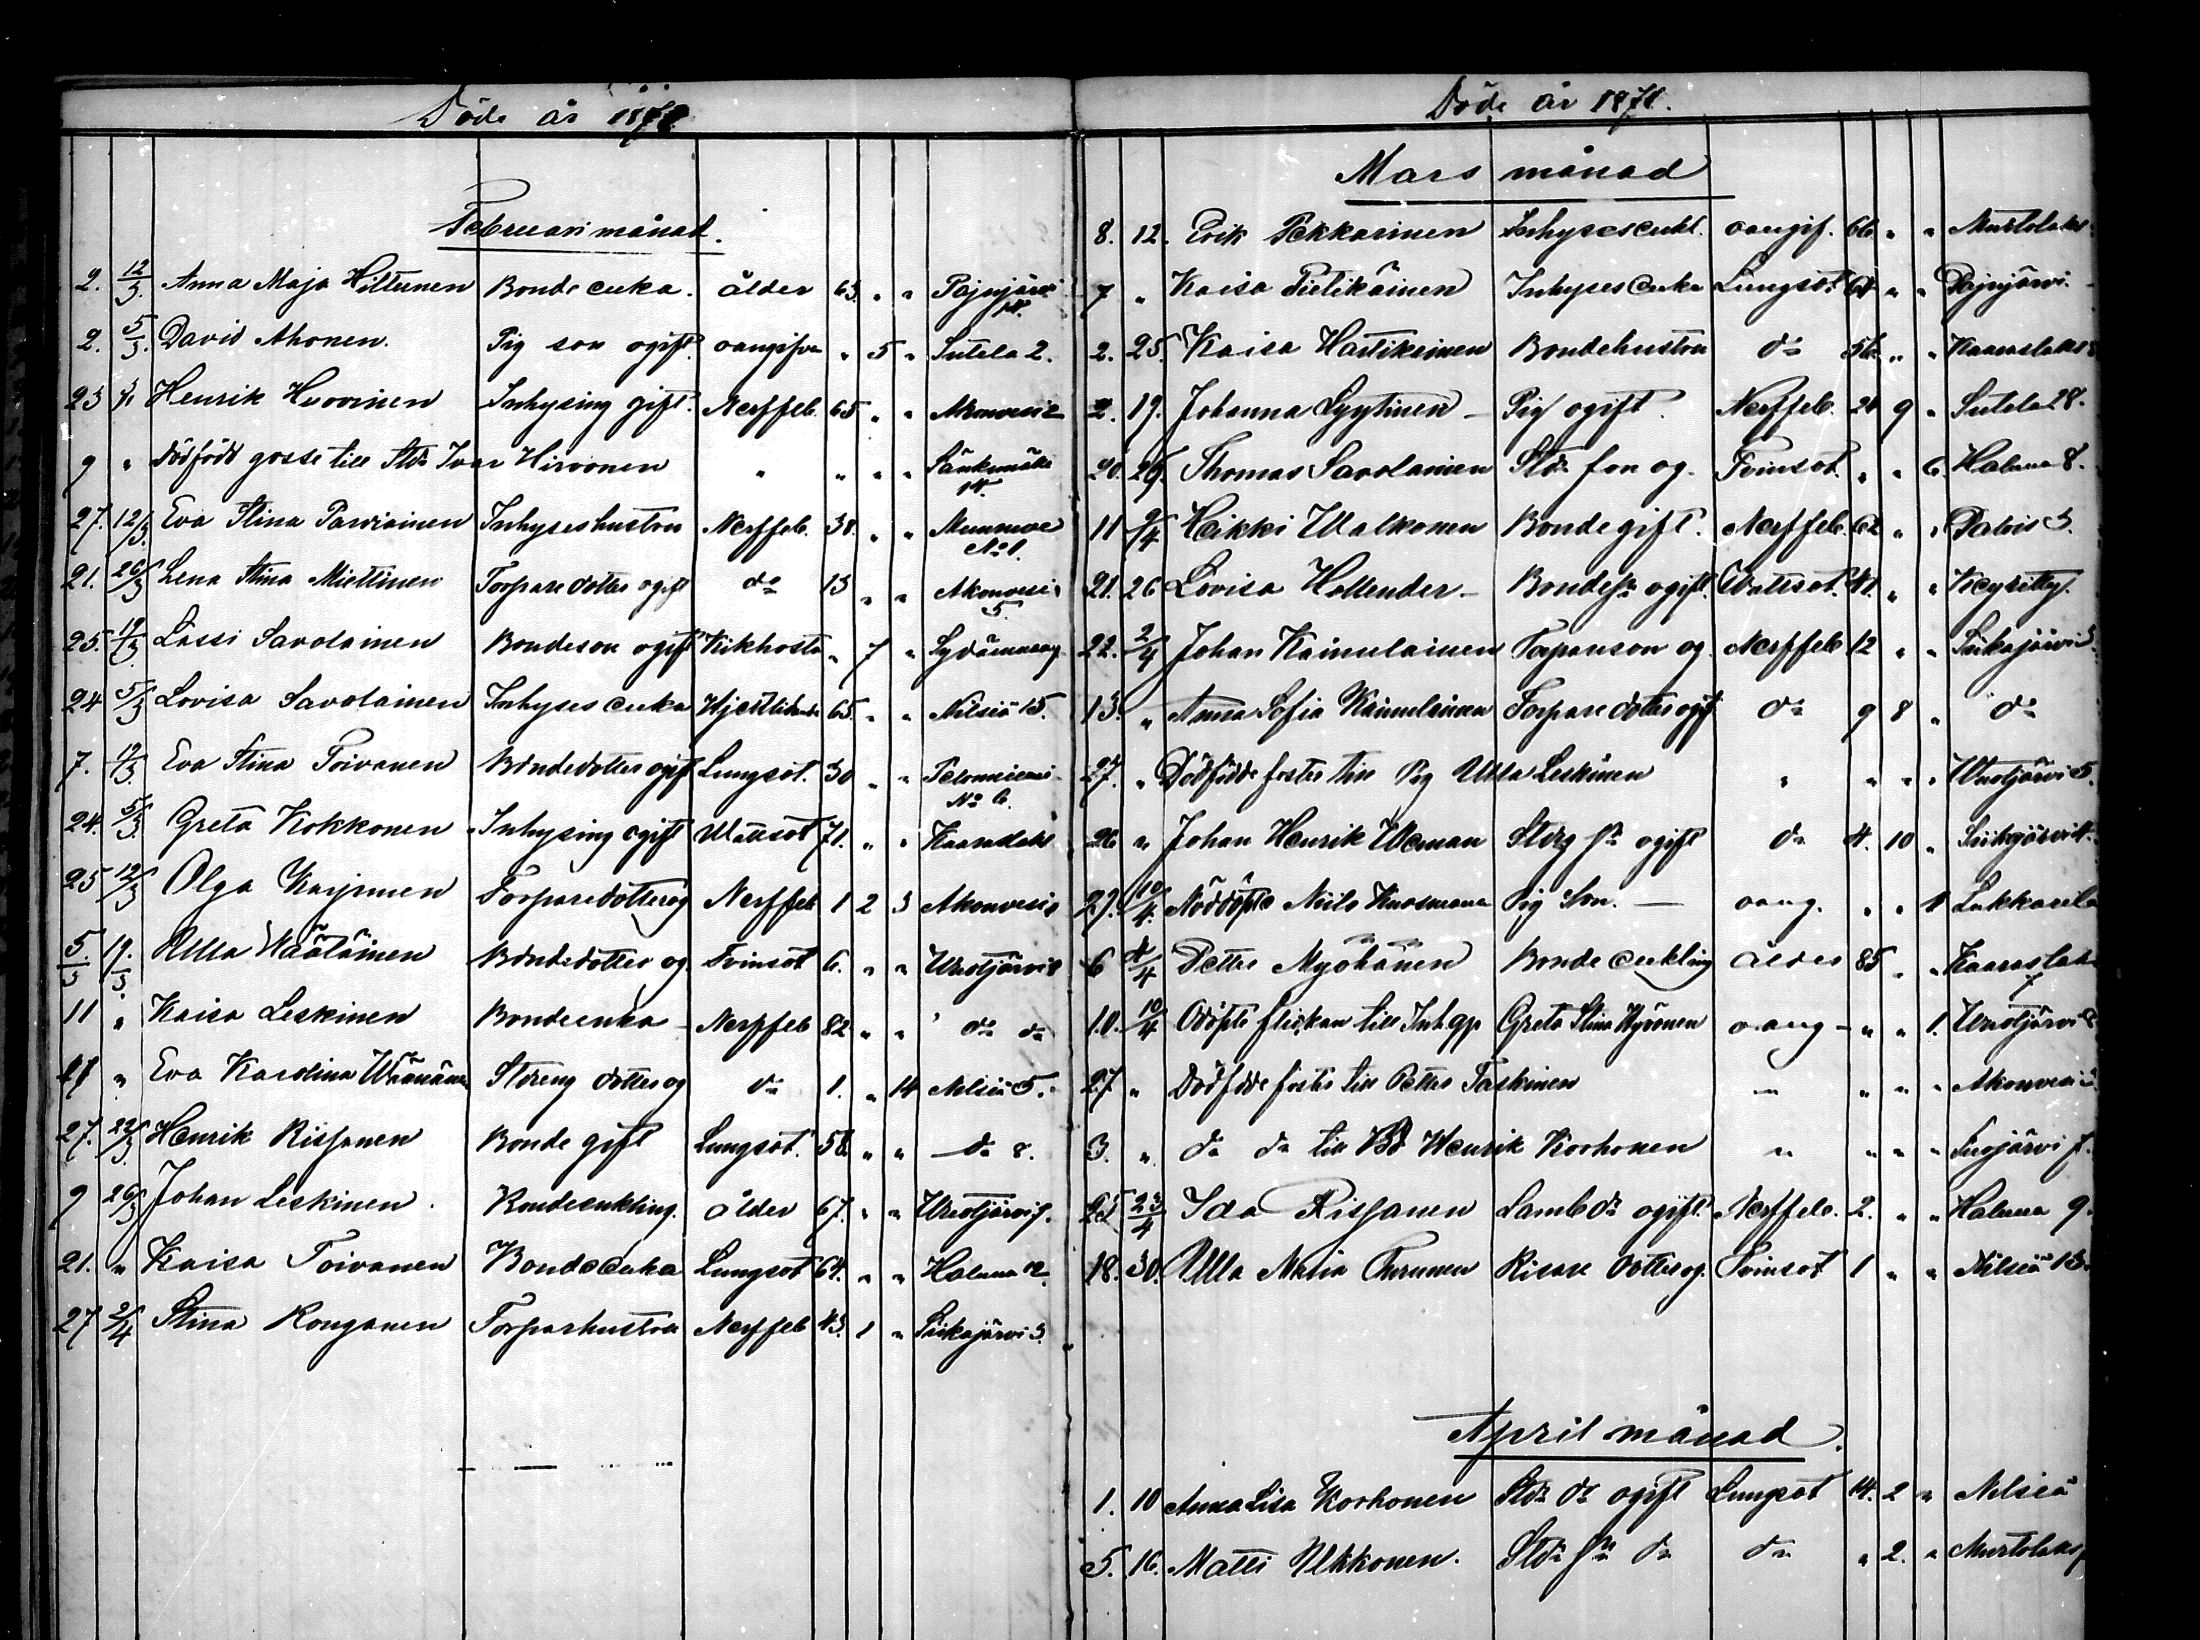 Döde år 1871
Februari månad.
2. 12/3. Anna Maja Hiltunen Bonde enka. ålder 63. " " Pajujärvi 14.
2. 5/3. David Ahonen. Pig son ogift. oangifven " 5 " Sutela 2.
23 Henrik Huovinen Inhysing gift. Nerffeb. 65 " " Akonvesi 2
9 " Dödfödd gosse till Std Ivar Hirvonen " " " " Sänkimäki 14.
27. 12/3. Eva Stina Parviainen Inhyseshustru Nerffeb. 38. " " No 1.
21. 26/3 Lena Stina Miettinen Torpare dotter ogift do 13 " " Akonvesi 5.
25. 19/3 Lassi Savolainen Bondeson ogift Kikhosta " 7 " Sydänmaa
24 5/3 Lovisa Savolainen Inhyses enka 65. " " Nilsiä 15.
7. 12/3. Eva Stina Toivanen Bondedotter ogift Lungsot. 30 " " Pelonniemi No 6.
24. 5/3. Greta Kokkonen Inhysing ogift Wattsot 71. " " Kaaraslaks
25 12/3 Olga Karjunen Torparedotter og Nerffeb 1 2 3 Akonvesi
5/3 19/3. Ulla Wäätäinen Bondedotter og Tvinsot 6. " " Wuotjärvi 8
11 " Kaisa Leskinen Bondeenka Nerffeb 82 " " do do
27 " Eva Karolina Wäänänen Storeng dotter og do 1. " 14 Nilsiä 5.
27. 22/3. Henrik Rissanen Bonde gift Lungsot. 58 " " do 8.
9 26/3 Johan Leskinen. Bondeenkling. ålder 67. " " Wuotjärvi 7.
21. " Kaisa Toivanen Bondeenka Lungsot 64. " " Haluna 12.
27 2/4 Stina Konganen Torparhustru Nerffeb 43. 1 " Siikajärvi 3.
Döde år 1871.
Mars månad
8. 12. Erik Pekkarinen Inhysesenkl. oangif. 66 " " Murtolaks
7 " Kaisa Pietikäinen Inhyses Enka Lungsot 64 " " Pajujärvi.
2. 25. Kaisa Hartikainen Bondehustru do 56 " " Kaaraslaks 8
2. 19. Johanna Lyytinen – Pig ogift. Nerffeb. 24 9 " Sutela 28.
20. 29. Thomas Savolainen Std son og. Tvinsot. " " 6. Haluna 8.
11 9/4 Heikki Walkonen Bonde gift. Nerffeb. 62 " " Palois 3.
21. 26 Lovisa Hollender – Bonde ogift. Wattsot. 41. " "
22. 2/4 Johan Kainulainen Torpareson og. Nerffeb 12 " " Siikajärvi 3.
13. " Anna Sofia Kainulainen Torpare dotter ogift do 9 8 " do
27. " Dödfödde foster till Pig Ulla Leskinen " " " " Wuotjärvi 5.
26 " Johan Henrik Weman Storg sn ogift do 4. 10 " Siikajärvi 4.
29. 10/4. Nöddöpte Niilo Kuosmanen Pig Son. — oang. " " 1 Lukkarila
6 4/4 Petter Myöhänen Bonde enkling ålder 85 " " Kaaraslaks 7
10. 10/4 Odöpte flickan till Inh qp Greta Stina Hyvönen oang – " " 1. Wuotjärvi 8
27 " Dödfödde foster till Petter Taskinen — " " " Akonvesi
3. " do do till Bd Henrik Korhonen " " " " Suojärvi 7.
25 23/4 Ida Rissanen Lamb dr ogift. Nerffeb. 2. " " Haluna 9.
18. 30. Ulla Maria Turunen Risare dotter og. Tvinsot 1 " " Nilsiä 13.
April månad.
1. 10 Anna Lisa Korhonen Std dr ogift Lungsot 14. 2 " Nilsiä
5. 16. Matti Ukkonen. Std sn do do " 2. " Murtolaks